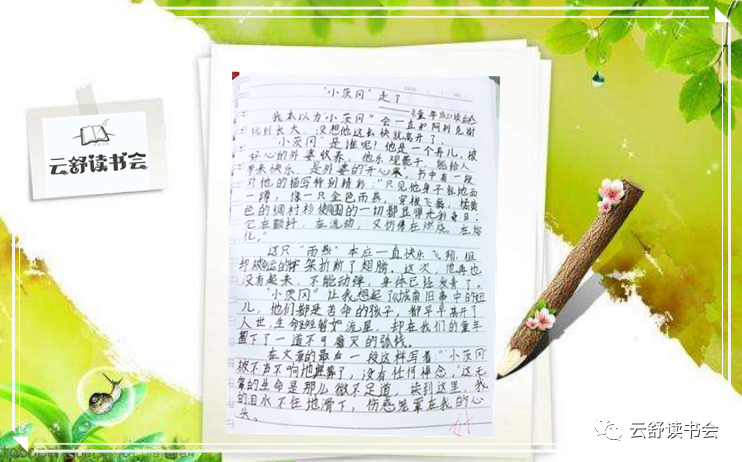 云舒读书会
"小茨冈"走了
童年读后感
我本以为"小茨冈"会一直和阿利克谢
玩到长大,没想他这么快就离开了。
"小茨冈"是谁呢?他是一个弃儿,被
好心的外婆收养,他乐观能干,能给人
带来快乐,是外婆的开心果,书中有一段
对他的描写特别精彩:"只见他身子在地面
一蹲,像一只金色雨燕,穿梭飞舞,橘黄
色的绸衬衫使周围的一切都显得光彩夺目:
它在颤抖,在流动,又仿佛在燃烧。在熔
化。"
这只"雨燕"本应一直快乐飞翔,但
却被命运的十字架折断了翅膀。这次,他再也
没有起来,不能动弹,身体已经发青了。
"小茨冈"让我想起了城南旧事中的妞
儿,他们都是苦命的孩子,都早早离开了
人世,生命短暂如流星,却在我们的童年
留下了一道不可磨灭的弧线。
在文章的最后一段这样写着:"小茨冈
被不声不响地埋葬了,没有任何悼念。"这无
辜的生命是那儿微不足道,读到这里,我
的泪水不住地滑下,伤感笼罩在我的心
头。
云舒读书会